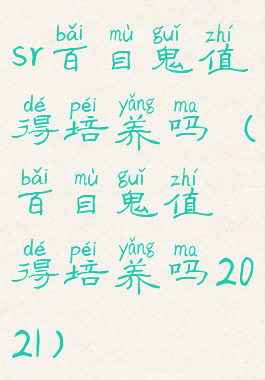 bǎi mù guǐ zhí
sr百目鬼值
dé péi yǎng ma
得培养吗（
bǎi mù guǐ zhí
百目鬼值
dé péi yǎng ma
得培养吗20
21）